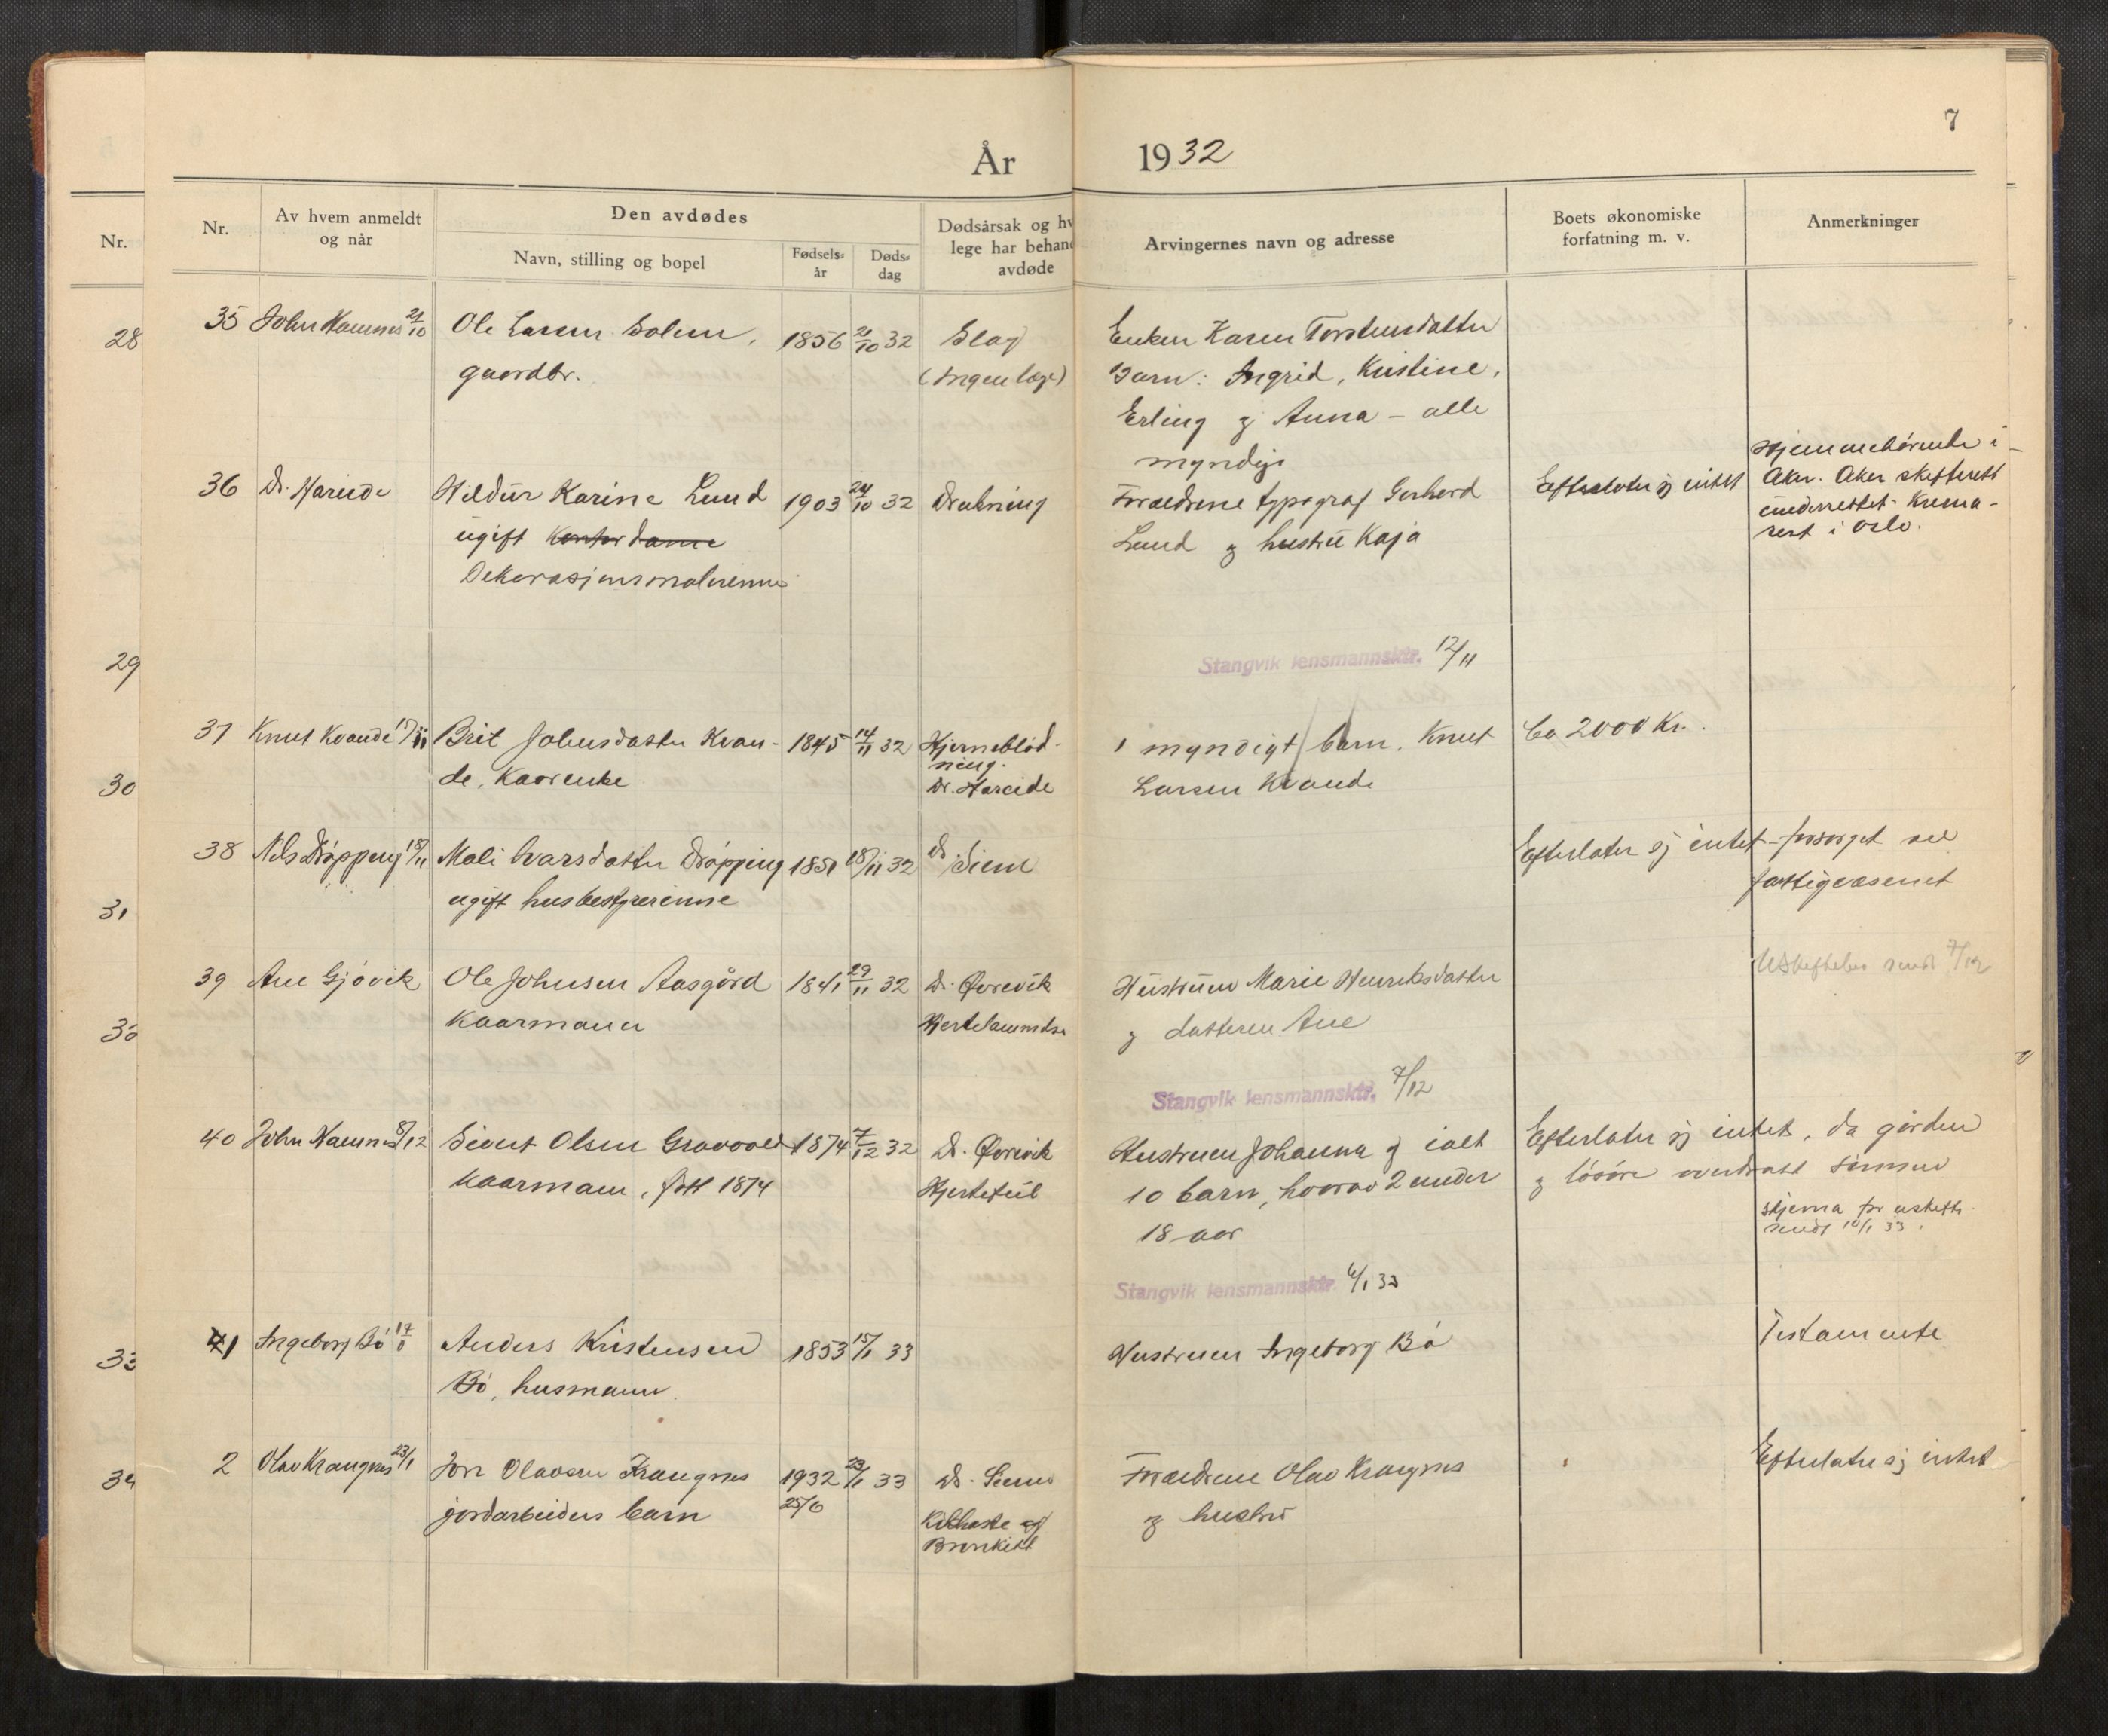 7
År 1932
Nr.
Nr.
Av hvem anmeldt
og når
Den avdødes
Navn, stilling og bopel
Fødsels-
år
Døds-
dag
Dødsårsak og hv
lege har behand
avdøde
Arvingernes navn og adresse
Boets økonomiske
forfatning m. v.
Anmerkninger
28
29
30
31
32
33
34
35 John Hamnes 21/10 Ole Larsen Solem, 1856 21/10 32 Slag Enken Karen Torstensdatter
gaardbr. (Ingen læge) Barn: Ingrid, Kristine,
Erling og Anna – alle
myndige
36 Dr. Hareide Hildur Karine Lund 1903 24/10 32 Drukning Forældrene typograf Gerhard Efterlater sj intet Hjemmehørende i
ugift Kontordame Lund og hustru Kaja Aker. Aker skifterett
Dekorasjonsmalerinne underrettet. Krema-
sert i Oslo.
Stangvik lensmannsktr. 12/11
37 Knut Kvande Brit Johnsdatter Kvan- 1845 14/11 32 Hjerneblød- 1 myndigt barn. Knut Ca 2000 Kr.
de, Kaarenke ning. Larsen Kvande
Dr. Hareide
38 Nils Drøpping 18/11 Mali Ivarsdatter Drøpping 1851 18/11 32 Dr. Siem Efterlater sj intet – forsørget ved
ugift husbestyrerinne fattigvæsenet
39 Ane Gjøvik Ole Johnsen Aasgård 1841 29/11 32 Dr. Øvrevik Hustruen Marie Henriksdatter Uskiftebev sendt 7/12
Kaarmann Hjertelammelse og datteren Ane
Stangvik lensmannsktr. 7/12
40 John Hamnes 8/12 Sivert Olsen Gravvold 1874 7/12 32 Dr. Øvrevik Hustruen Johanna og ialt Efterlater sj intet, da gården
Kaarmann, født 1874 Hjertefeil 10 barn, hvorav 2 under og løsøre overdratt sønnen
18 aar skjema for uskifte
sendt 10/1 33.
Stangvik lensmannsktr. 6/1 33
1 Ingeborg Bø 17/1 Anders Kristensen 1853 15/1 33 Hustruen Ingeborg Bø Testamente
Bø, husmann
2 Olav Krangnes 23/1 Jon Olavsen Krangnes 1932 23/1 33 Dr. Siem Forældrene Olav Krangnes Efterlater sj intet
jordarbeiders barn 25/6 Kikhoste og og hustru
Bronkitt